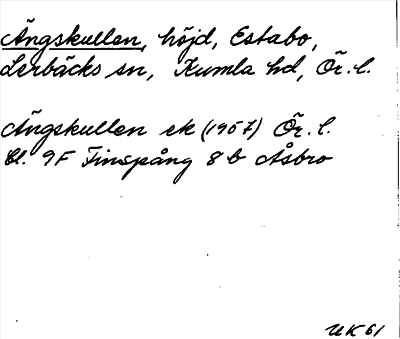 Ängskullen, höjd, Estabo,
Lerbäcks sn, Kumla hd, Ör. l.
Ängskullen ek (1957) Ör. l.
Bl. 9F Finspång 8 b Åsbro
UK 61